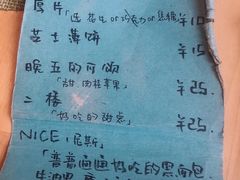 厚片
「选 花生 or 巧克力 or 焦糖」 ¥10
芝士薄饼 ¥15
晚五的可颂
「甜,肉桂苹果」 ¥25.
二楼
「好吃的甜点」 ¥25.
NICE(尼斯)
「普普通通好吃的黑面包